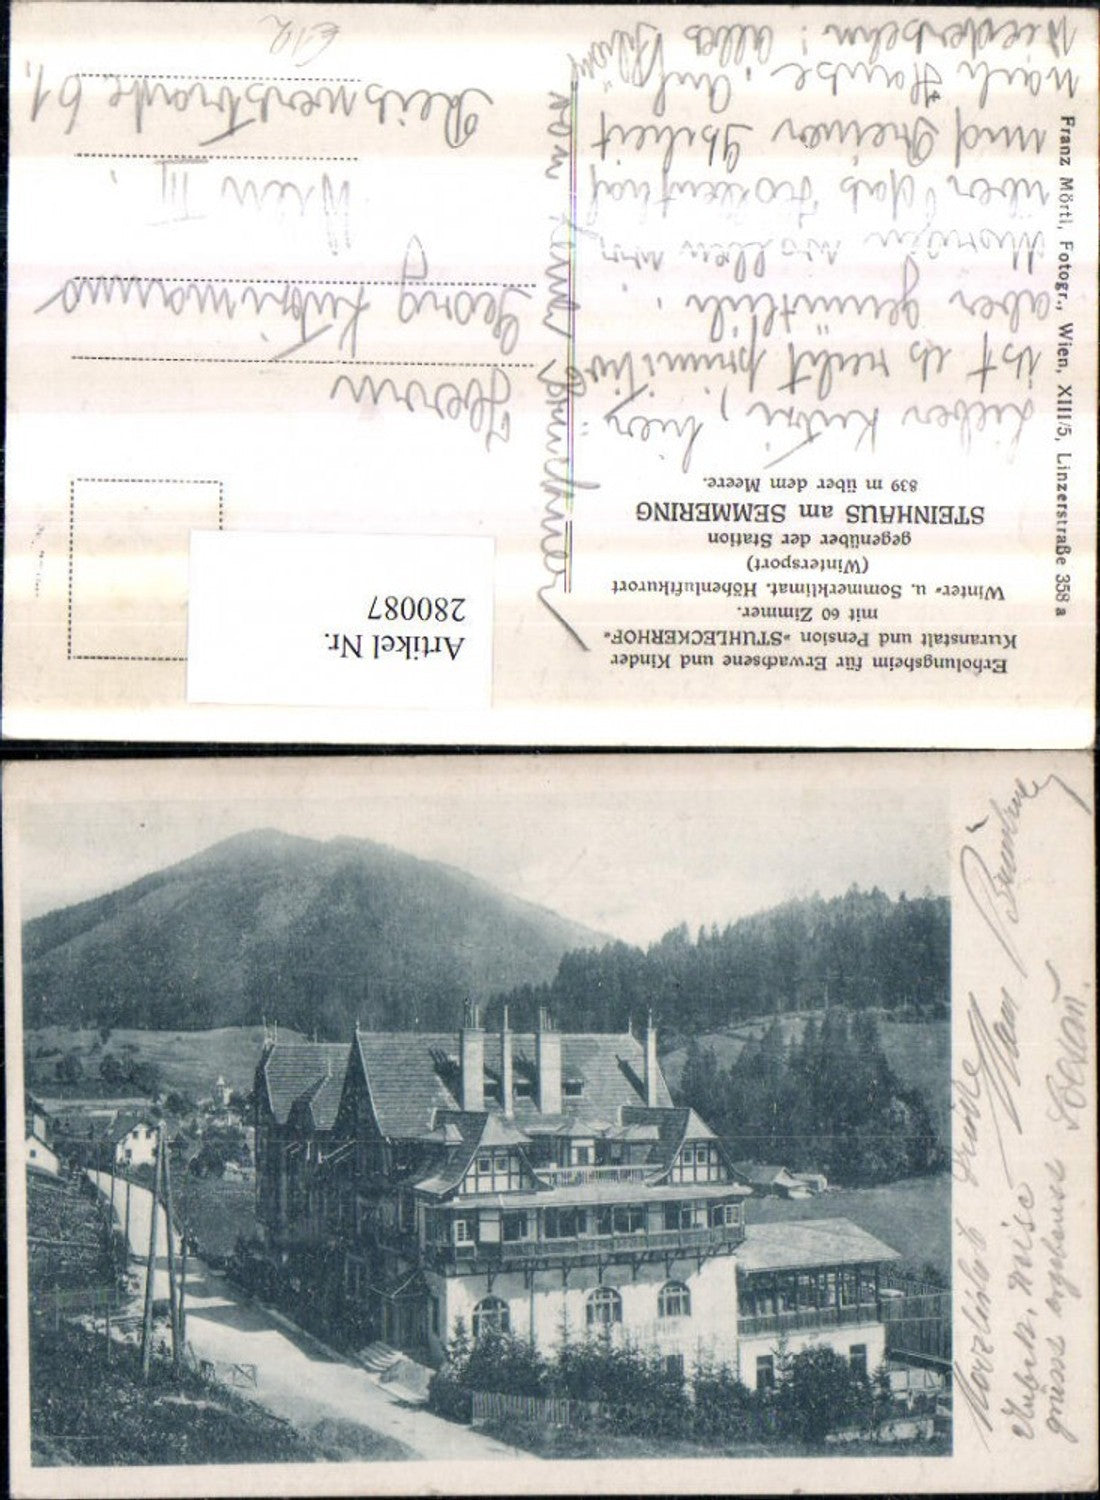 Erholungsheim für Erwachsene und Kinder
Kuranstalt und Pension »STUHLECKERHOF«
mit 60 Zimmer.
Winter- u. Sommerklimat. Höhenluftkurort
(Wintersport)
gegenüber der Station
STEINHAUS am SEMMERING
839 m über dem Meere.
Lieber Kutri, hier
ist es recht primitiv
aber gemütlich.
Morgen wollen wir
über das
und Deiner
nach Hause. Auf
Wiedersehn! Alles
vom
Franz Mörtl, Fotogr., Wien, XIII/5, Linzerstraße 358 a
Artikel Nr.
280087
Herrn
Georg
Wien III.
Reisnerstrasse 61.
Herzlichst
grüsst ergebenst